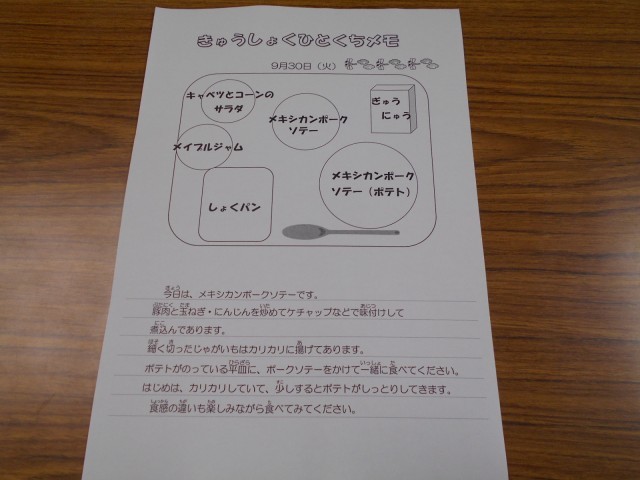 きゅうしょくひとくちメモ
9月30日（火）
キャベツとコーンの
サラダ
メキシカンポーク
ソテー
ぎゅう
にゅう
メイプルジャム
メキシカンポーク
ソテー（ポテト）
しょくパン
今日は、メキシカンポークソテーです。
豚肉と玉ねぎ・にんじんを炒めてケチャップなどで味付けして
煮込んであります。
細く切ったじゃがいもはカリカリに揚げてあります。
ポテトがのっている平皿に、ポークソテーをかけて一緒に食べてください。
はじめは、カリカリしていて、少しするとポテトがしっとりしてきます。
食感の違いも楽しみながら食べてみてください。